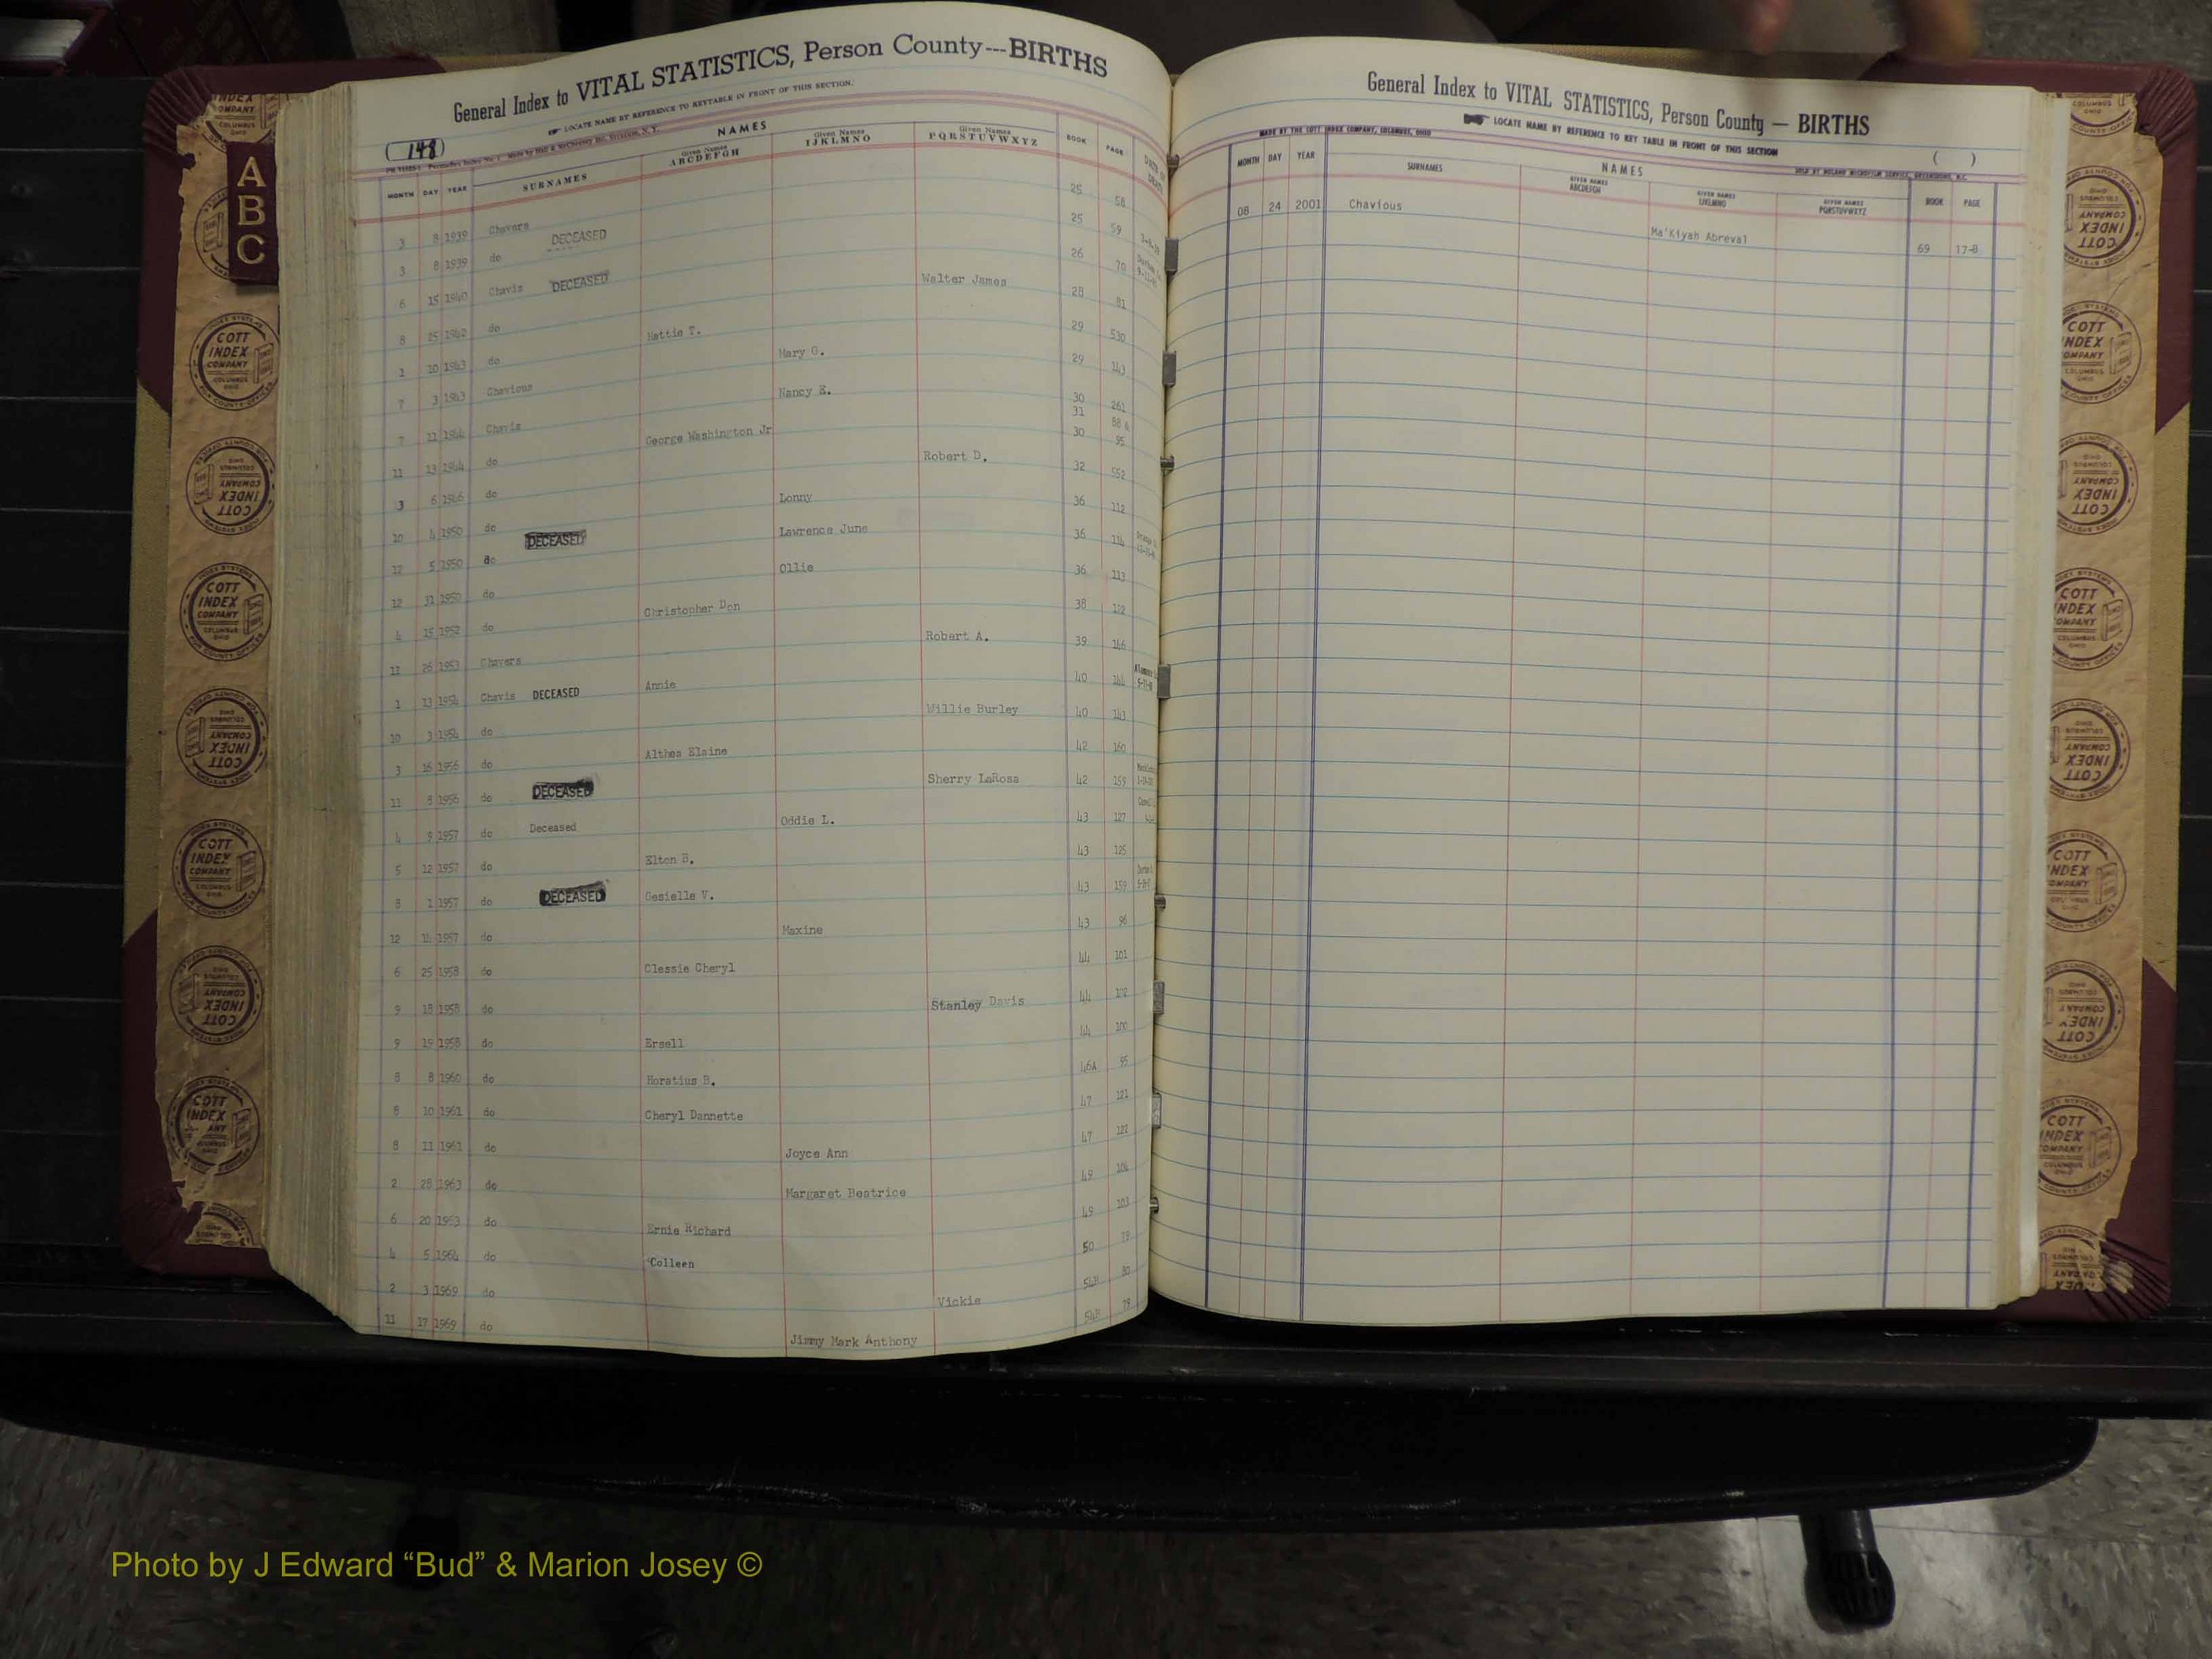 General Index to VITAL STATISTICS, Person County---BIRTHS
LOCATE NAME BY REFERENCE TO KEYTABLE IN FRONT OF THIS SECTION.
(148)
NAMES
MONTH DAY YEAR SURNAMES Given Names ABCDEFGH Given Names IJKLMNO Given Names PQRSTUVWXYZ BOOK PAGE
3 8 1939 Chavers DECEASED 25 58
3 8 1939 do 25 59
6 15 1940 Chavis DECEASED Walter James 26 70
8 25 1942 do Hattie T. 28 81
1 10 1943 do Mary G. 29 530
7 3 1943 Chavious Nancy E. 29 143
7 11 1944 Chavis George Washington Jr 30 261
31 88 &
11 13 1944 do Robert D. 30 95
3 6 1946 do Lonny 32 552
10 4 1950 do DECEASED Lawrence June 36 112
12 5 1950 do Ollie 36 114
12 31 1950 do Christopher Don 36 113
4 15 1952 do Robert A. 38 122
11 26 1953 Chavers Annie 39 166
1 13 1954 Chavis DECEASED Willie Burley 40 144
10 3 1954 do Althea Elaine 40 143
3 16 1956 do Sherry LaRosa 42 160
11 8 1956 do DECEASED Oddie L. 42 159
4 9 1957 do Deceased Elton B. 43 127
5 12 1957 do Gesielle V. 43 125
8 1 1957 do DECEASED Maxine 43 159
12 14 1957 do Clessie Cheryl 43 96
6 25 1958 do Stanley Davis 44 101
9 18 1958 do Ersell 44 102
9 19 1958 do Horatius B. 44 100
8 8 1960 do Cheryl Dannette 46A 95
8 10 1961 do Joyce Ann 47 121
8 11 1961 do Margaret Beatrice 47 122
2 28 1963 do Ernie Richard 49 104
6 20 1963 do Colleen 49 103
4 5 1964 do Vickie 50 79
2 3 1969 do Jimmy Mark Anthony 54B 80
11 17 1969 do 54B 79
General Index to VITAL STATISTICS, Person County — BIRTHS
LOCATE NAME BY REFERENCE TO KEY TABLE IN FRONT OF THIS SECTION
( )
MADE BY THE COTT INDEX COMPANY, COLUMBUS, OHIO
NAMES
MONTH DAY YEAR SURNAMES GIVEN NAMES ABCDEFGH GIVEN NAMES IJKLMNO GIVEN NAMES PQRSTUVWXYZ BOOK PAGE
08 24 2001 Chavious Ma'Kiyah Abreval 69 17-8
A
B
C
COTT
INDEX
COMPANY
COLUMBUS
OHIO
Photo by J Edward “Bud” & Marion Josey ©